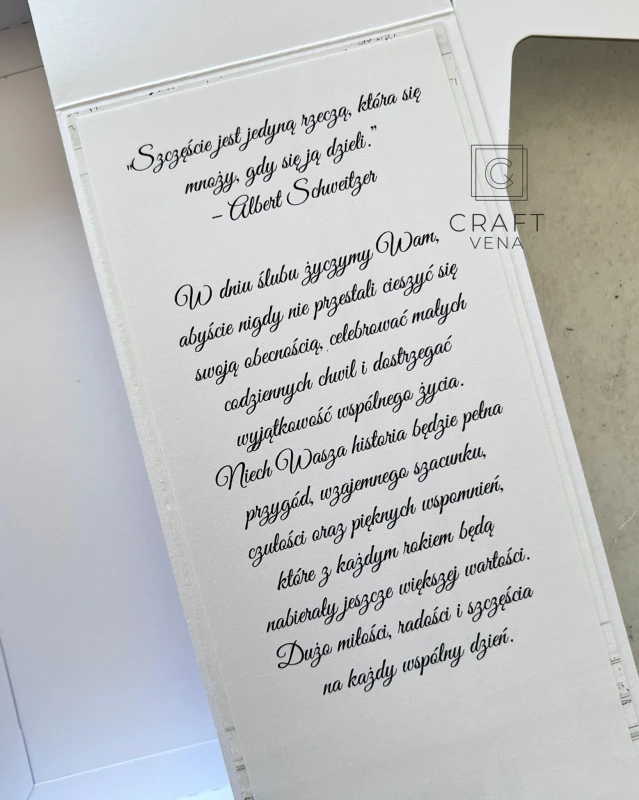 „Szczęście jest jedyną rzeczą, która się
mnoży, gdy się ją dzieli.”
– Albert Schweitzer
W dniu ślubu życzymy Wam,
abyście nigdy nie przestali cieszyć się
swoją obecnością, celebrować małych
codziennych chwil i dostrzegać
wyjątkowość wspólnego życia.
Niech Wasza historia będzie pełna
przygód, wzajemnego szacunku,
czułości oraz pięknych wspomnień,
które z każdym rokiem będą
nabierały jeszcze większej wartości.
Dużo miłości, radości i szczęścia
na każdy wspólny dzień.
CRAFT
VENA